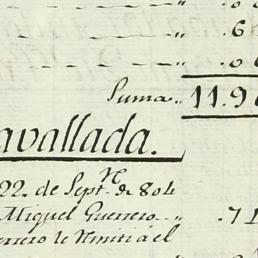 6
Suma.. 11.9
avallada.
22. de Septᴺ. de 804
Miguel Guerrero .. .71
rrero le Remiti a el